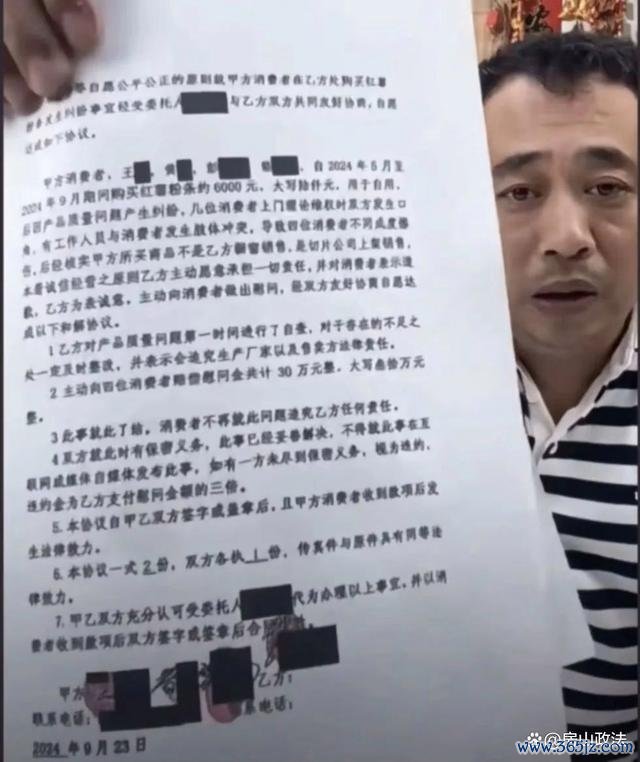 等自愿公平公正的原则就甲方消费者在乙方处购买红薯
粉条发生纠纷事宜经受委托人 与乙方双方共同友好协商,自愿
达成如下协议。
甲方消费者,王 、黄 、彭 、 ,自2024年5月至
2024年9月期间购买红薯粉条约6000元,大写陆仟元,用于自用,
后因产品质量问题产生纠纷,几位消费者上门理论维权时双方发生口
角,有工作人员与消费者发生肢体冲突,导致四位消费者不同成度修
伤,后经核实甲方所买商品不是乙方橱窗销售,是切片公司上架销售,
本着诚信经营之原则乙方主动愿意承担一切责任,并对消费者表示道
歉,乙方为表诚意,主动向消费者做出慰问,经双方友好协商自愿达
成以下和解协议。
1乙方对产品质量问题第一时间进行了自查,对于存在的不足之
处一定及时整改,并表示会追究生产厂家以及售卖方法律责任。
2主动向四位消费者赔偿慰问金共计30万元整,大写叁拾万元
整。
3此事就此了结,消费者不再就此问题追究乙方任何责任。
4双方就此时有保密义务,此事已经妥善解决,不得就此事在互
联网或媒体自媒体发布此事,如有一方未尽到保密义务,视为违约,
违约金为乙方支付慰问金额的三倍。
5.本协议自甲乙双方签字或盖章后,且甲方消费者收到款项后发
生法律效力。
6.本协议一式2份,双方各执1份,传真件与原件具有同等法
律效力。
7.甲乙双方充分认可受委托人 代为办理以上事宜,并以消
费者收到款项后双方签字或签章后合
甲方 乙方:
联系电话: 联系电话:
2024年9月23日
房山政法
www.365jz.com